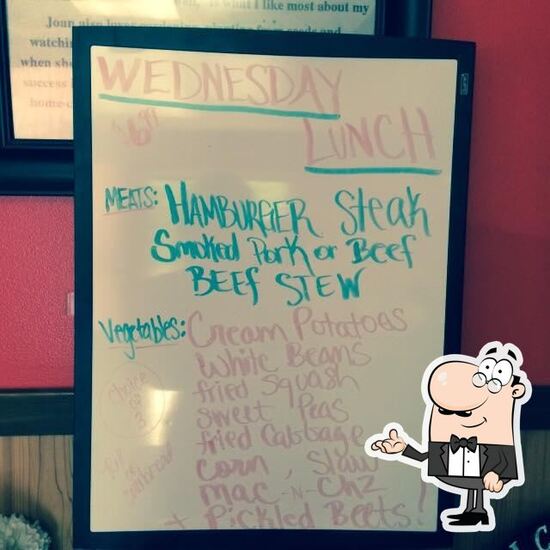 is what I like most about my
Joan also loves gardening, planting from seeds and
watchin
when sh
success
home-
WEDNESDAY
LUNCH
$6.99
MEATS: HAMBURGER Steak
Smoked Pork or Beef
BEEF STEW
Vegetables: Cream Potatoes
White Beans
fried Squash
Sweet Peas
fried Cabbage
Corn, Slaw
mac-N-Chz
+ Pickled Beets!
Choice
of
3
Roll
or
cornbread